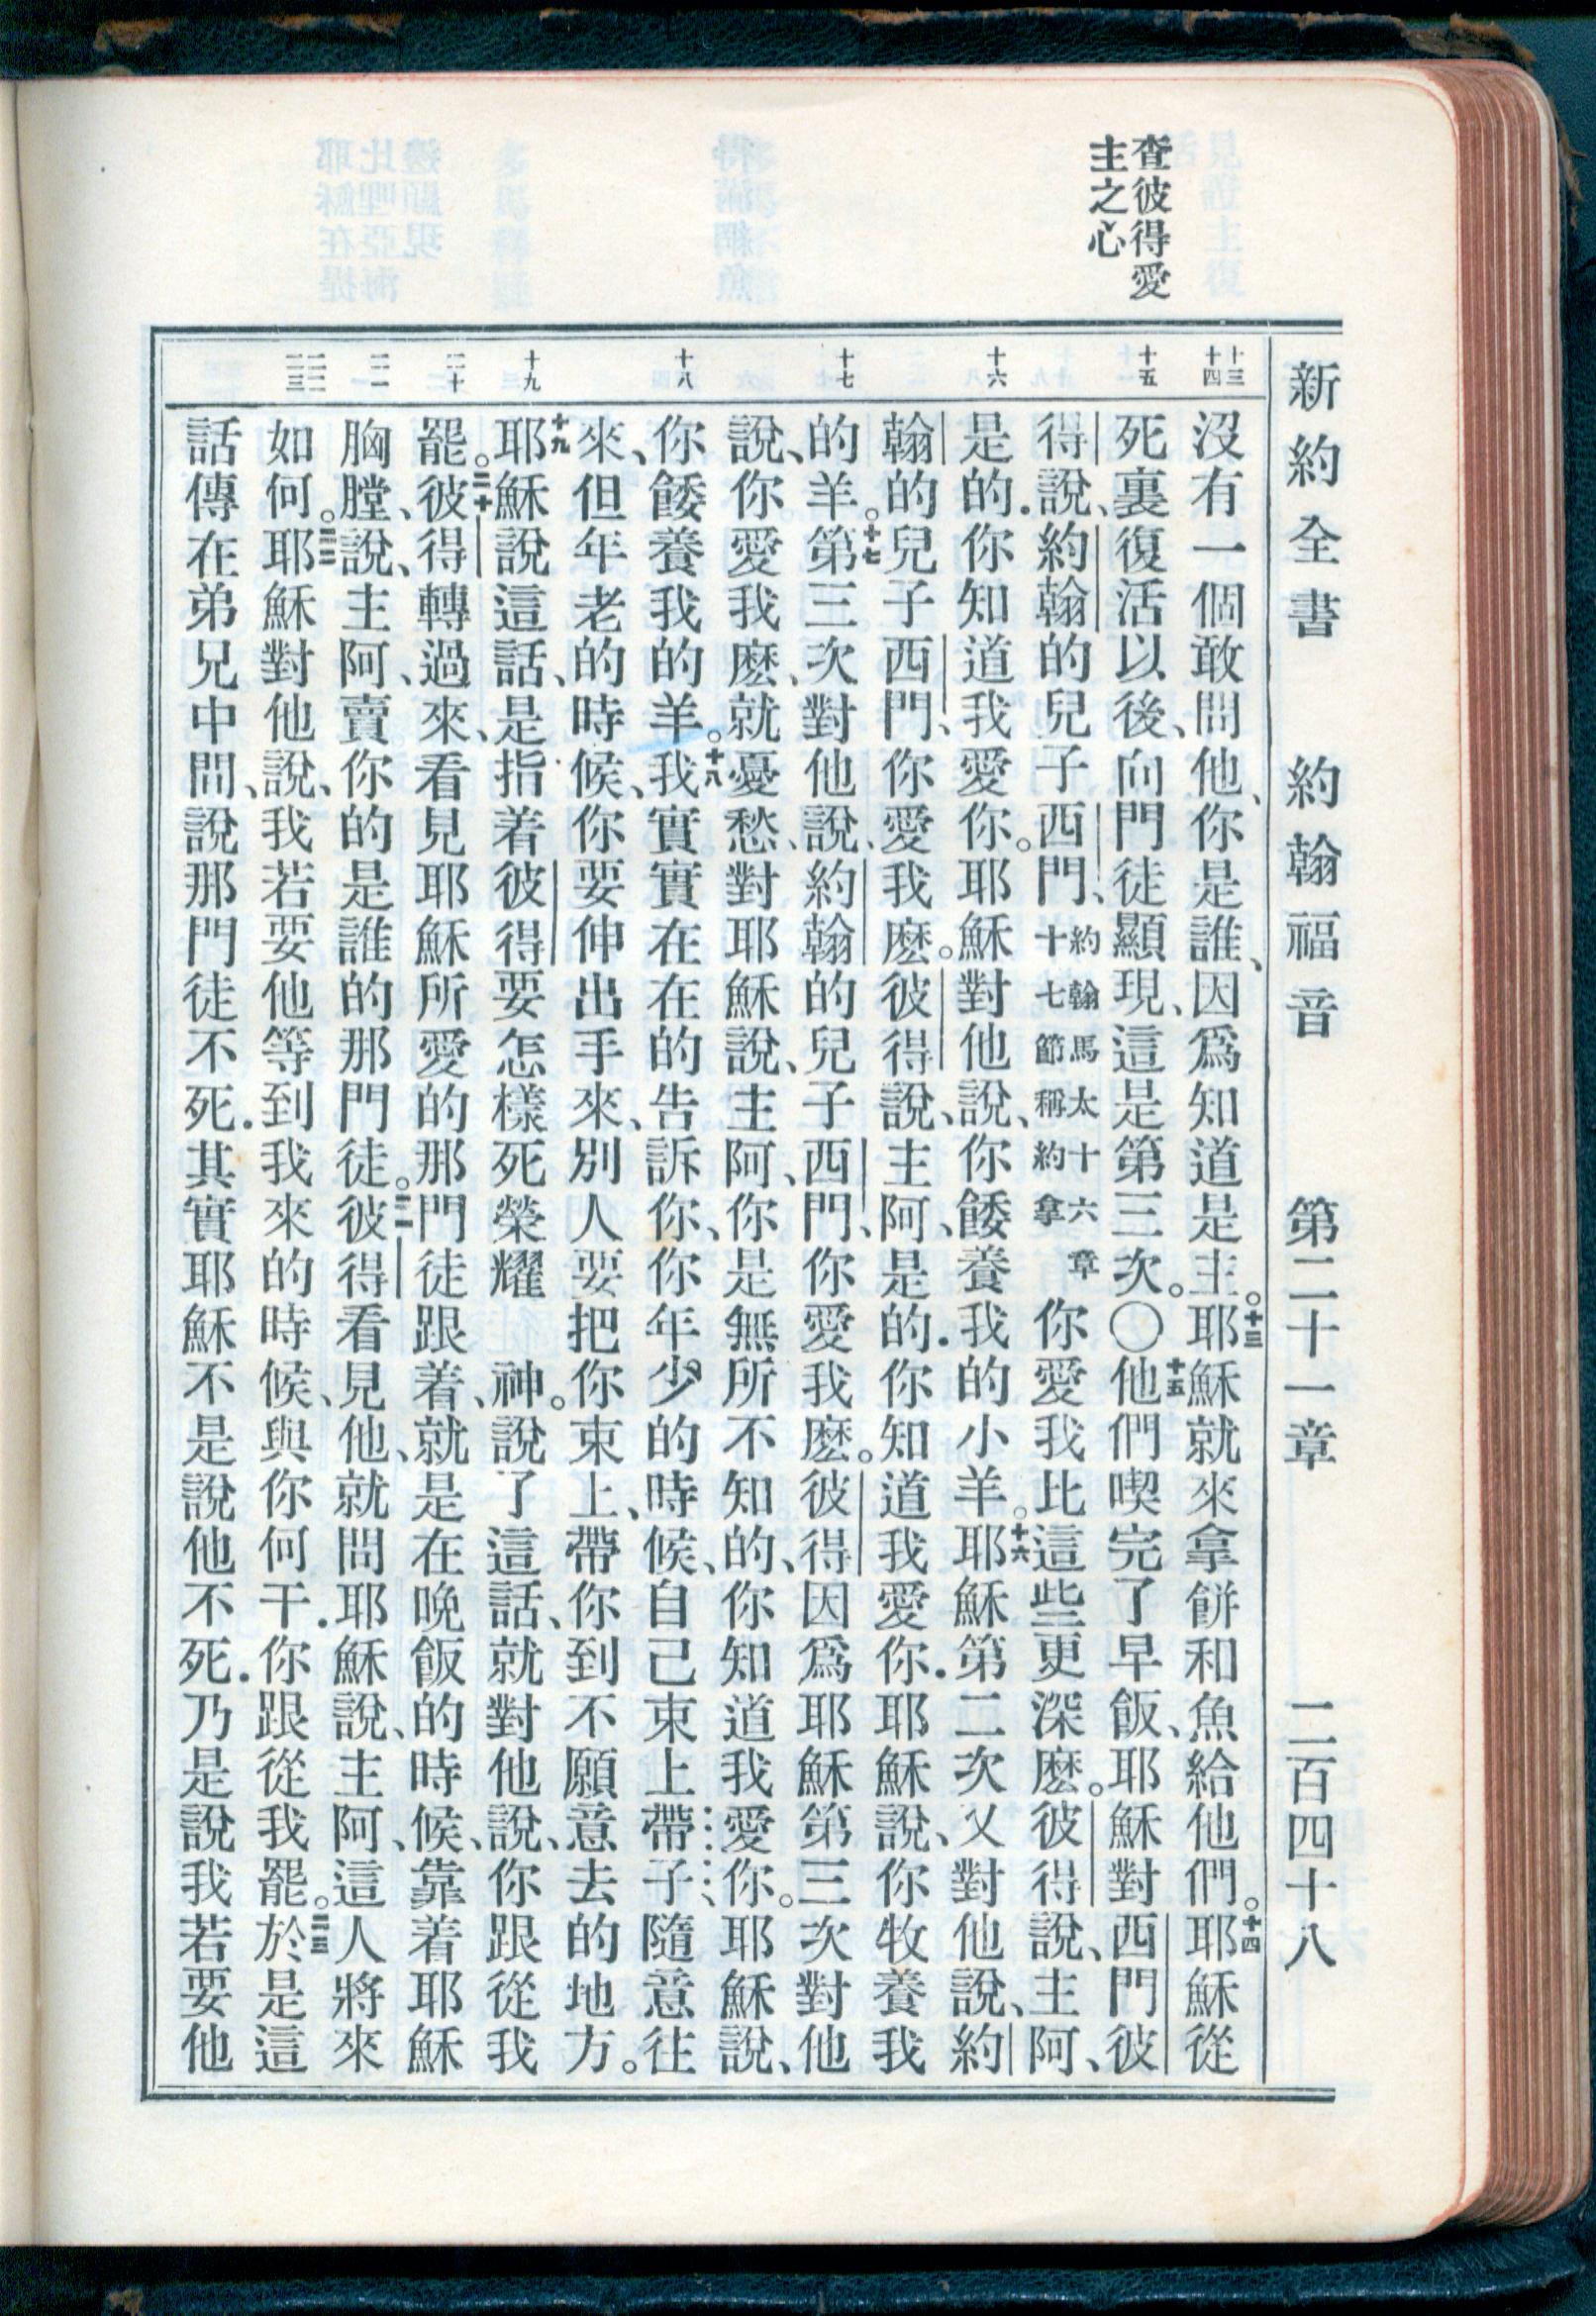 新約全書 約翰福音 第二十一章 二百四十八
查彼得愛
主之心
十三
十四
十五
十六
十七
十八
十九
二十
二一
二二
二三
沒有一個敢問他、你是誰、因爲知道是主。十三耶穌就來拿餅和魚給他們。十四耶穌從
死裏復活以後、向門徒顯現、這是第三次。〇十五他們喫完了早飯、耶穌對西門彼
得說、約翰的兒子西門、約翰馬太十六章十七節稱約拿你愛我比這些更深麽。彼得說、主阿、
是的．你知道我愛你。耶穌對他說、你餧養我的小羊。十六耶穌第二次又對他說、約
翰的兒子西門、你愛我麽。彼得說、主阿、是的．你知道我愛你．耶穌說、你牧養我
的羊。十七第三次對他說、約翰的兒子西門、你愛我麽。彼得因爲耶穌第三次對他
說、你愛我麽、就憂愁、對耶穌說、主阿、你是無所不知的、你知道我愛你。耶穌說、
你餧養我的羊。十八我實實在在的告訴你、你年少的時候、自己束上帶子、隨意往
來、但年老的時候、你要伸出手來、別人要把你束上、帶你到不願意去的地方。
十九耶穌說這話、是指着彼得要怎樣死榮耀 神。說了這話、就對他說、你跟從我
罷。二十彼得轉過來、看見耶穌所愛的那門徒跟着、就是在晚飯的時候、靠着耶穌
胸膛、說、主阿、賣你的是誰的那門徒。二一彼得看見他、就問耶穌說、主阿、這人將來
如何。二二耶穌對他說、我若要他等到我來的時候、與你何干．你跟從我罷。二三於是這
話傳在弟兄中間、說那門徒不死．其實耶穌不是說他不死．乃是說我若要他